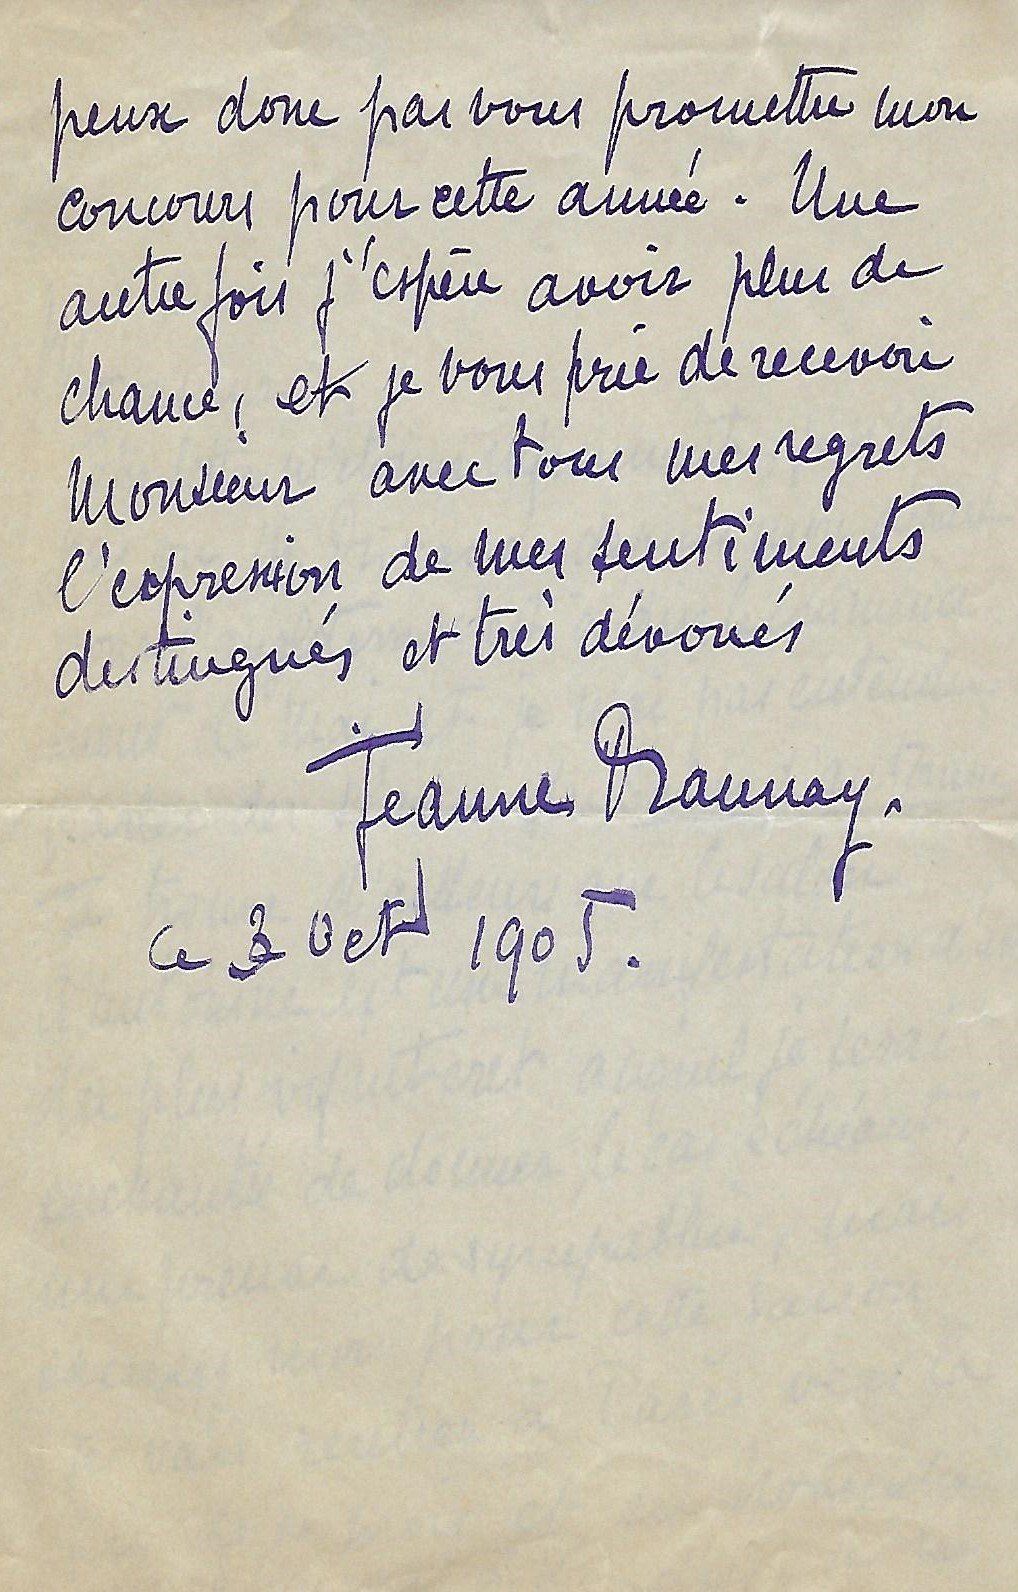 peux donc pas vous promettre mon
concours pour cette année. Une
autre fois j'espère avoir plus de
chance, et je vous prie de recevoir
Monsieur avec tous mes regrets
l'expression de mes sentiments
distingués et très dévoués
Jeanne Raunay.
Ce 3 Oct 1905.